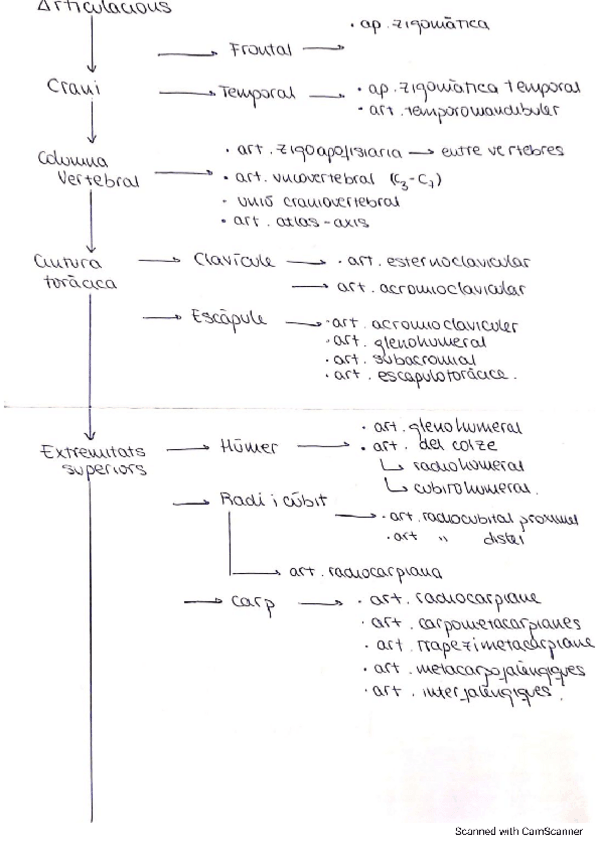 Articulacions
· ap. zigomàtica
Frontal
Crani
Temporal
· ap. zigomàtica temporal
· art. temporomandibular
Columna
Vertebral
· art. zigoapofisiaria → entre vertebres
· art. uncovertebral (C3-C7)
· unió craniovertebral
· art. atlas-axis
Cintura
toràcica
Clavícule
· art. esternoclavicular
art. acromioclavicular
Escàpule
· art. acromioclaviculer
· art. glenohumeral
· art. subacromial
· art. escapulotoràcica.
Extremitats
superiors
Húmer
· art. glenohumeral
· art. del colze
radiohumeral
cubitohumeral.
Radi i cúbit
· art. radiocubital proximal
· art " distal
art. radiocarpiana
Carp
· art. radiocarpiane
· art. carpometacarpianes
· art. trapezimetacarpiane
· art. metacarpofalàngiques
· art. interfalàngiques.
Scanned with CamScanner